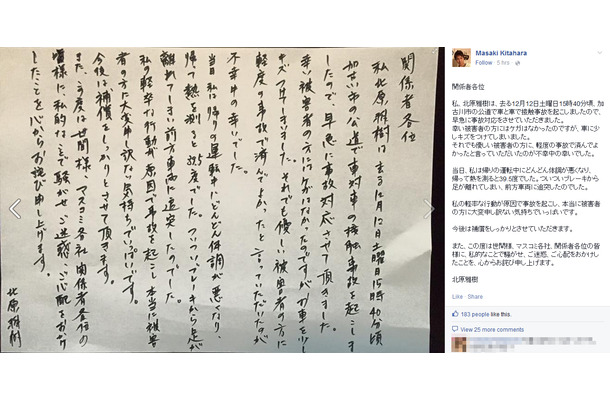 関係者各位
私北原雅樹は、去る12月12土曜日15時40分頃
加古川市の公道で車対車の接触事故を起こしま
したので、早急に事故対応させて頂きました。
幸い被害者の方にはケガはなかったのですが、お車に少し
キズつけてしまいました。それでも優しい被害者の方に
軽度の事故で済んでよかったと言っていただいたのが
不幸中の幸いでした。
当日私は帰りの運転中にどんどん体調が悪くなり、
帰って熱を測ると39.5度でした。ついついブレーキから足が
離れてしまい前方車両に追突したのでした。
私の軽卒な行動が原因で事故を起こし本当に被害
者の方に大変申し訳ない気持ちでいっぱいです。
今後は補償をしっかりとさせて頂きます。
また、この度は世間様、マスコミ各社、関係者各位の
皆様に、私的なことで騒がせ、ご迷惑、ご心配をおかけ
したことを心からお詫び申し上げます。
北原雅樹
Masaki Kitahara
Follow · 5 hrs ·
関係者各位
私、北原雅樹は、去る12月12日土曜日15時40分頃、加
古川市の公道で車と車で接触事故を起こしましたので、
早急に事故対応をさせていただきました。
幸い被害者の方にはケガはなかったのですが、車に少
しキズをつけてしまいました。
それでも優しい被害者の方に、軽度の事故で済んでよ
かったと言っていただいたのが不幸中の幸いでした。
当日、私は帰りの運転中にどんどん体調が悪くなり、
帰って熱を測ると39.5度でした。ついついブレーキから
足が離れてしまい、前方車両に追突したのでした。
私の軽率な行動が原因で事故を起こし、本当に被害者
の方に大変申し訳ない気持ちでいっぱいです。
今後は補償をしっかりとさせていただきます。
また、この度は世間様、マスコミ各社、関係者各位の皆
様に、私的なことで騒がせ、ご迷惑、ご心配をおかけし
たことを、心からお詫び申し上げます。
北原雅樹
Like · Share
183 people like this.
View 25 more comments